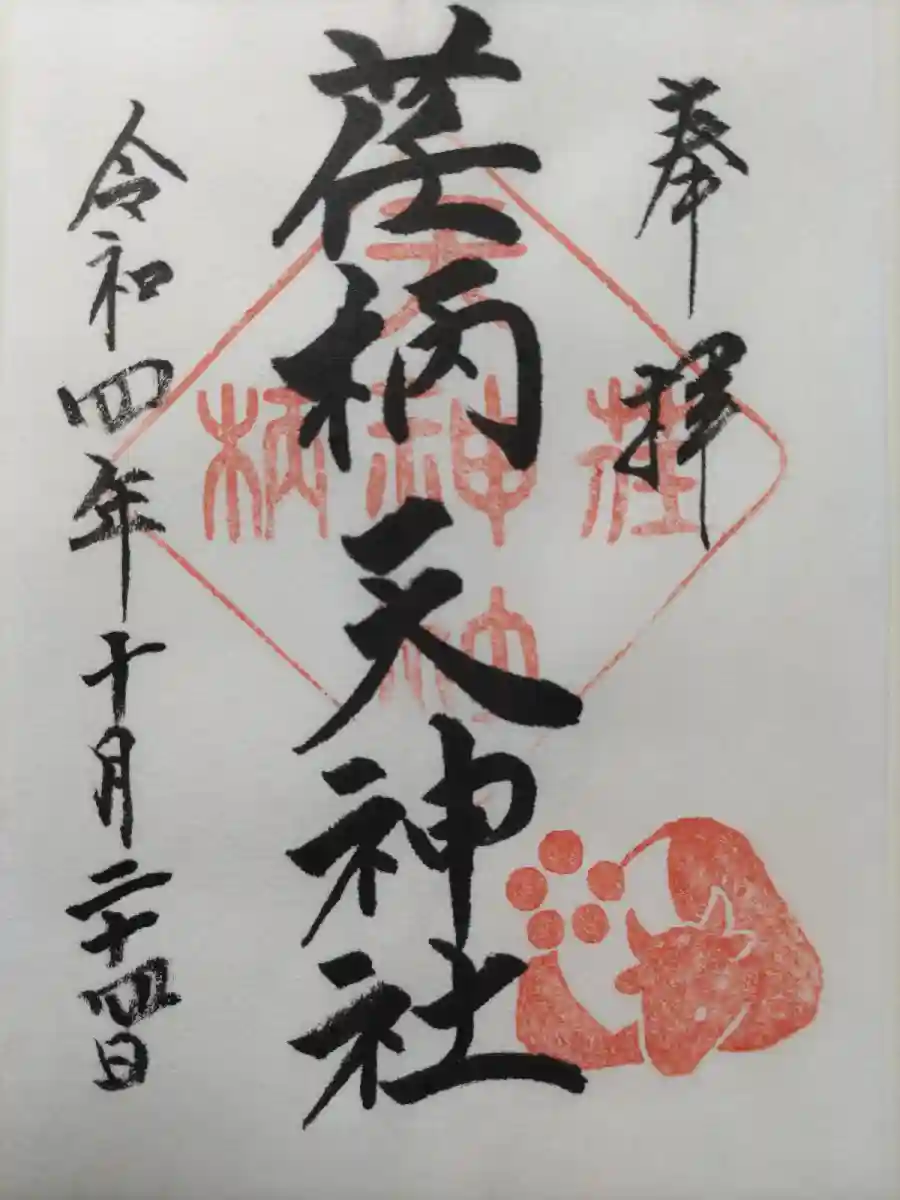 奉拝
荏柄天神社
令和四年十月二十四日
荏
天神社
柄